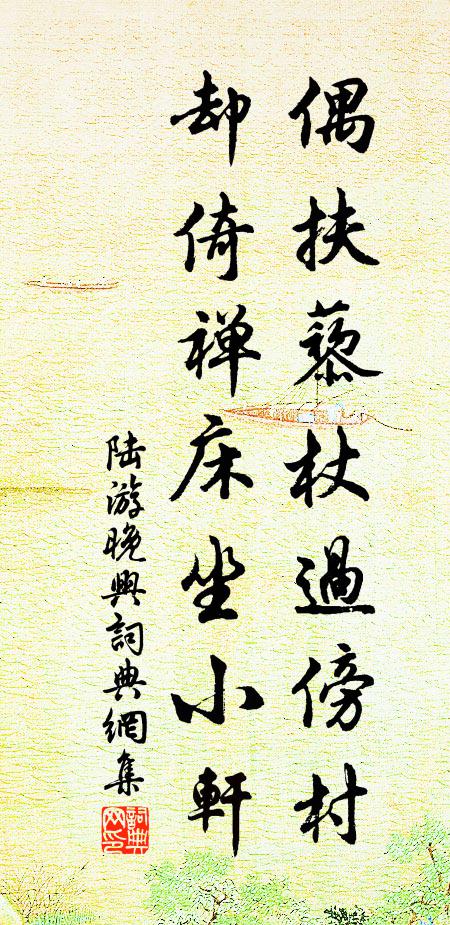 偶扶藜杖過傍村
却倚禅床坐小軒
陆游晚興詞典網集
詞典网印